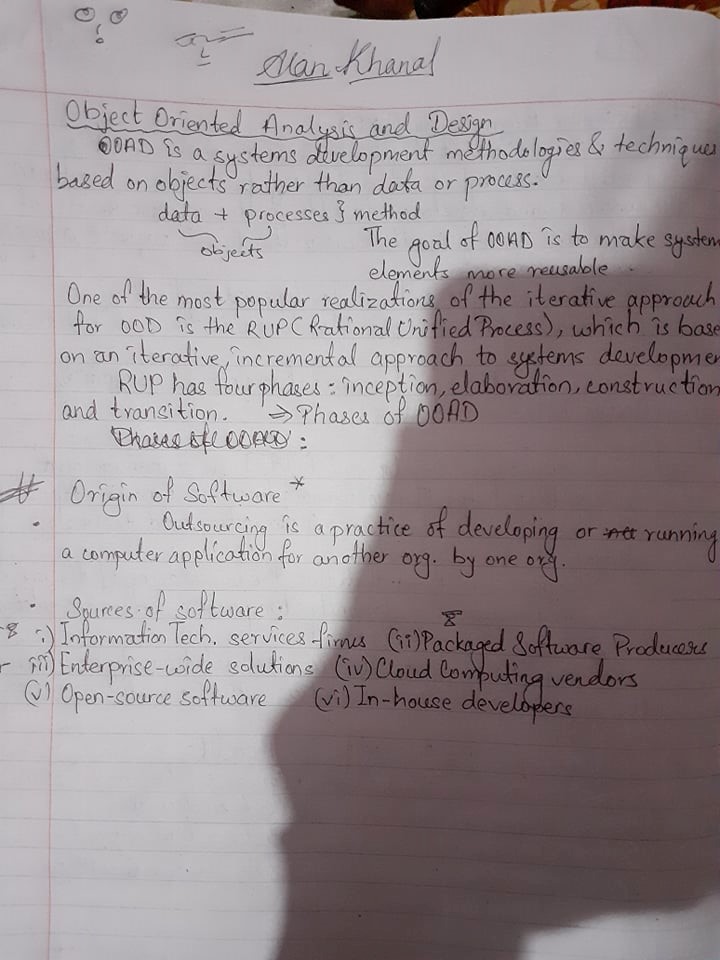 Alan Khanal
Object Oriented Analysis and Design
OOAD is a systems development methodologies & techniques
based on objects rather than data or process.
data + processes } method
objects
The goal of OOAD is to make system
elements more reusable.
One of the most popular realizations of the iterative approach
for OOD is the RUP (Rational Unified Process), which is base
on an iterative, incremental approach to systems developmen
RUP has four phases : inception, elaboration, construction
and transition. ⇒ Phases of OOAD
Phases of OOAD :
# Origin of Software *
• Outsourcing is a practice of developing or running
a computer application for another org. by one org.
• Sources of software :
i) Information Tech. services firms (ii) Packaged Software Producers
iii) Enterprise-wide solutions (iv) Cloud Computing vendors
(v) Open-source software (vi) In-house developers